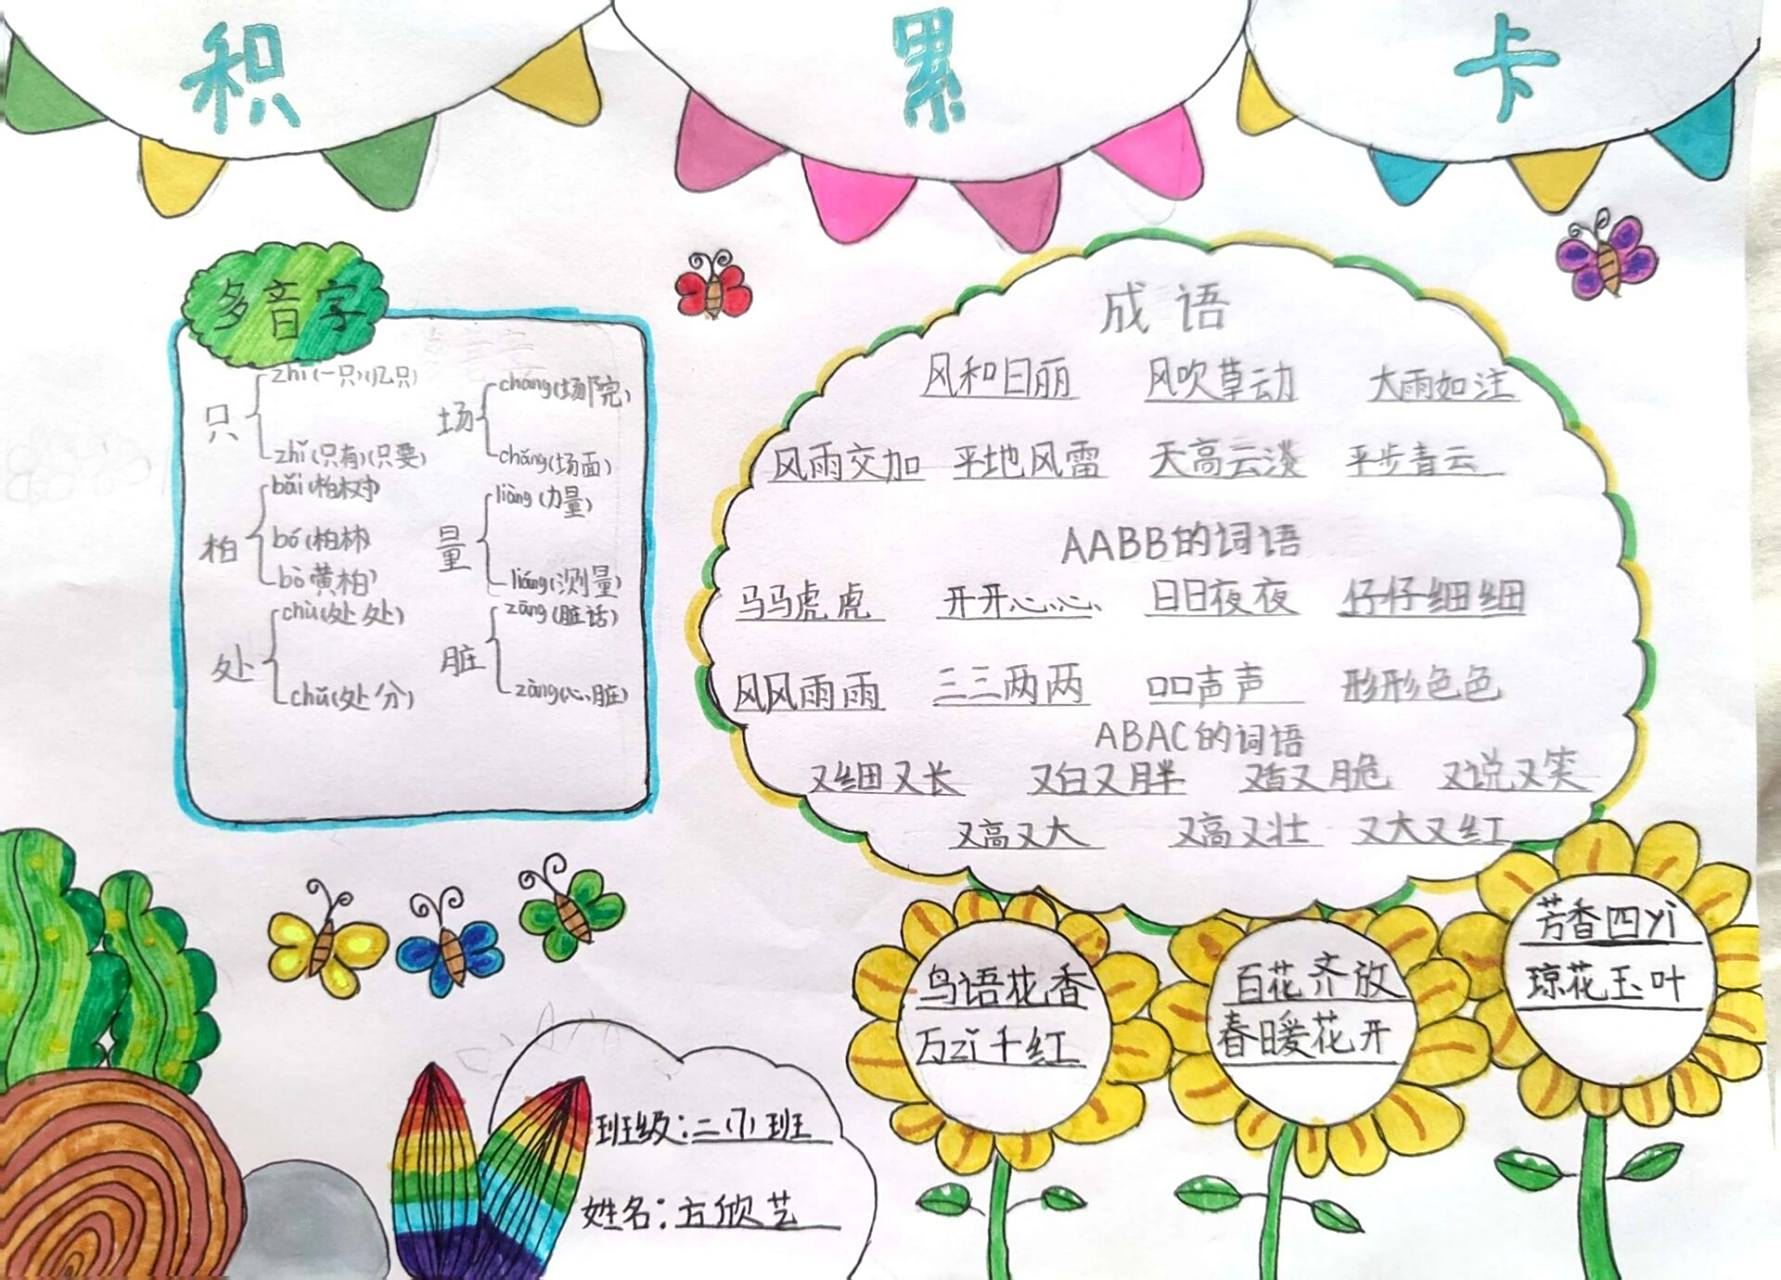 积 累 卡
多音字
只
zhī(一只)(几只)
zhǐ(只有)(只要)
柏
bǎi(柏树)
bó(柏林)
bò(黄柏)
处
chù(处处)
chǔ(处分)
场
cháng(场院)
chǎng(场面)
量
liàng(力量)
liáng(测量)
脏
zāng(脏话)
zàng(心脏)
成语
风和日丽 风吹草动 大雨如注
风雨交加 平地风雷 天高云淡 平步青云
AABB的词语
马马虎虎 开开心心 日日夜夜 仔仔细细
风风雨雨 三三两两 口口声声 形形色色
ABAC的词语
又细又长 又白又胖 又香又脆 又说又笑
又高又大 又高又壮 又大又红
鸟语花香
万zǐ千红
百花齐放
春暖花开
芳香四yì
琼花玉叶
班级:二(7)班
姓名:方欣艺